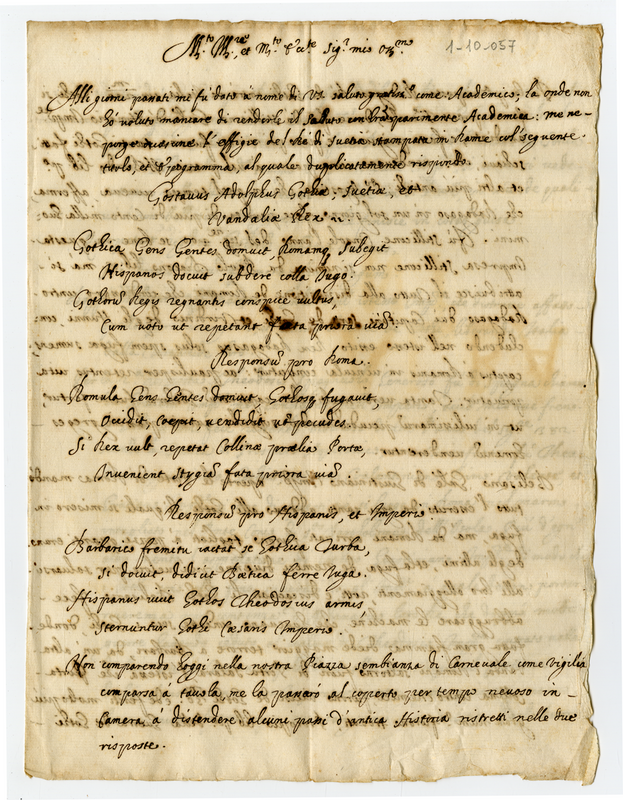 M.to Ill.re, et M.to Ecc.te Sig.r mio Oss.mo
1-10-057
Alli giorni passati mi fu dato a nome di VS. saluto come Academico; la onde non
hò voluto mancare di renderle il saluto parimente Academico: me ne
porge occasione l'effigie del Rè di Suetia stampata in Rame col seguente
titolo, et Epigramma, al quale duplicatamente rispondo.
Gostavus Adolphus Gothiæ, Suetiæ, et
Vandaliæ Rex
Gothica Gens Gentes domuit, Romamq. subegit
Hispanos docuit subdere colla Iugo:
Gothorũ Regis regnantis conspice vultus,
Cum voto ut repetant fata priora viã.
Responsũ pro Roma.
Romula Gens Gentes domuit, Gothosq. fugavit,
Occidit, coepit, vendidit ut pecudes.
Si Rex vult, repetat Collinæ prælia Portæ,
Invenient Stygiã fata priora viã.
Responsũ pro Hispanis, et Imperio
Barbarico fremitu iactat se Gothica Turba,
Si docuit, didicit Bætica ferre Iuga.
Hispanus vicit Gothos Theodosius armis,
Sternuntur Gothi Cæsaris Imperio.
Non comparendo hoggi nella nostra Piazza sembianza di Carnevale, come vigilia
comparsa à tavola, me la passarò al coperto per tempo nevoso in
Camera, à distendere alcuni passi d'antica Historia ristretti nelle due
risposte.